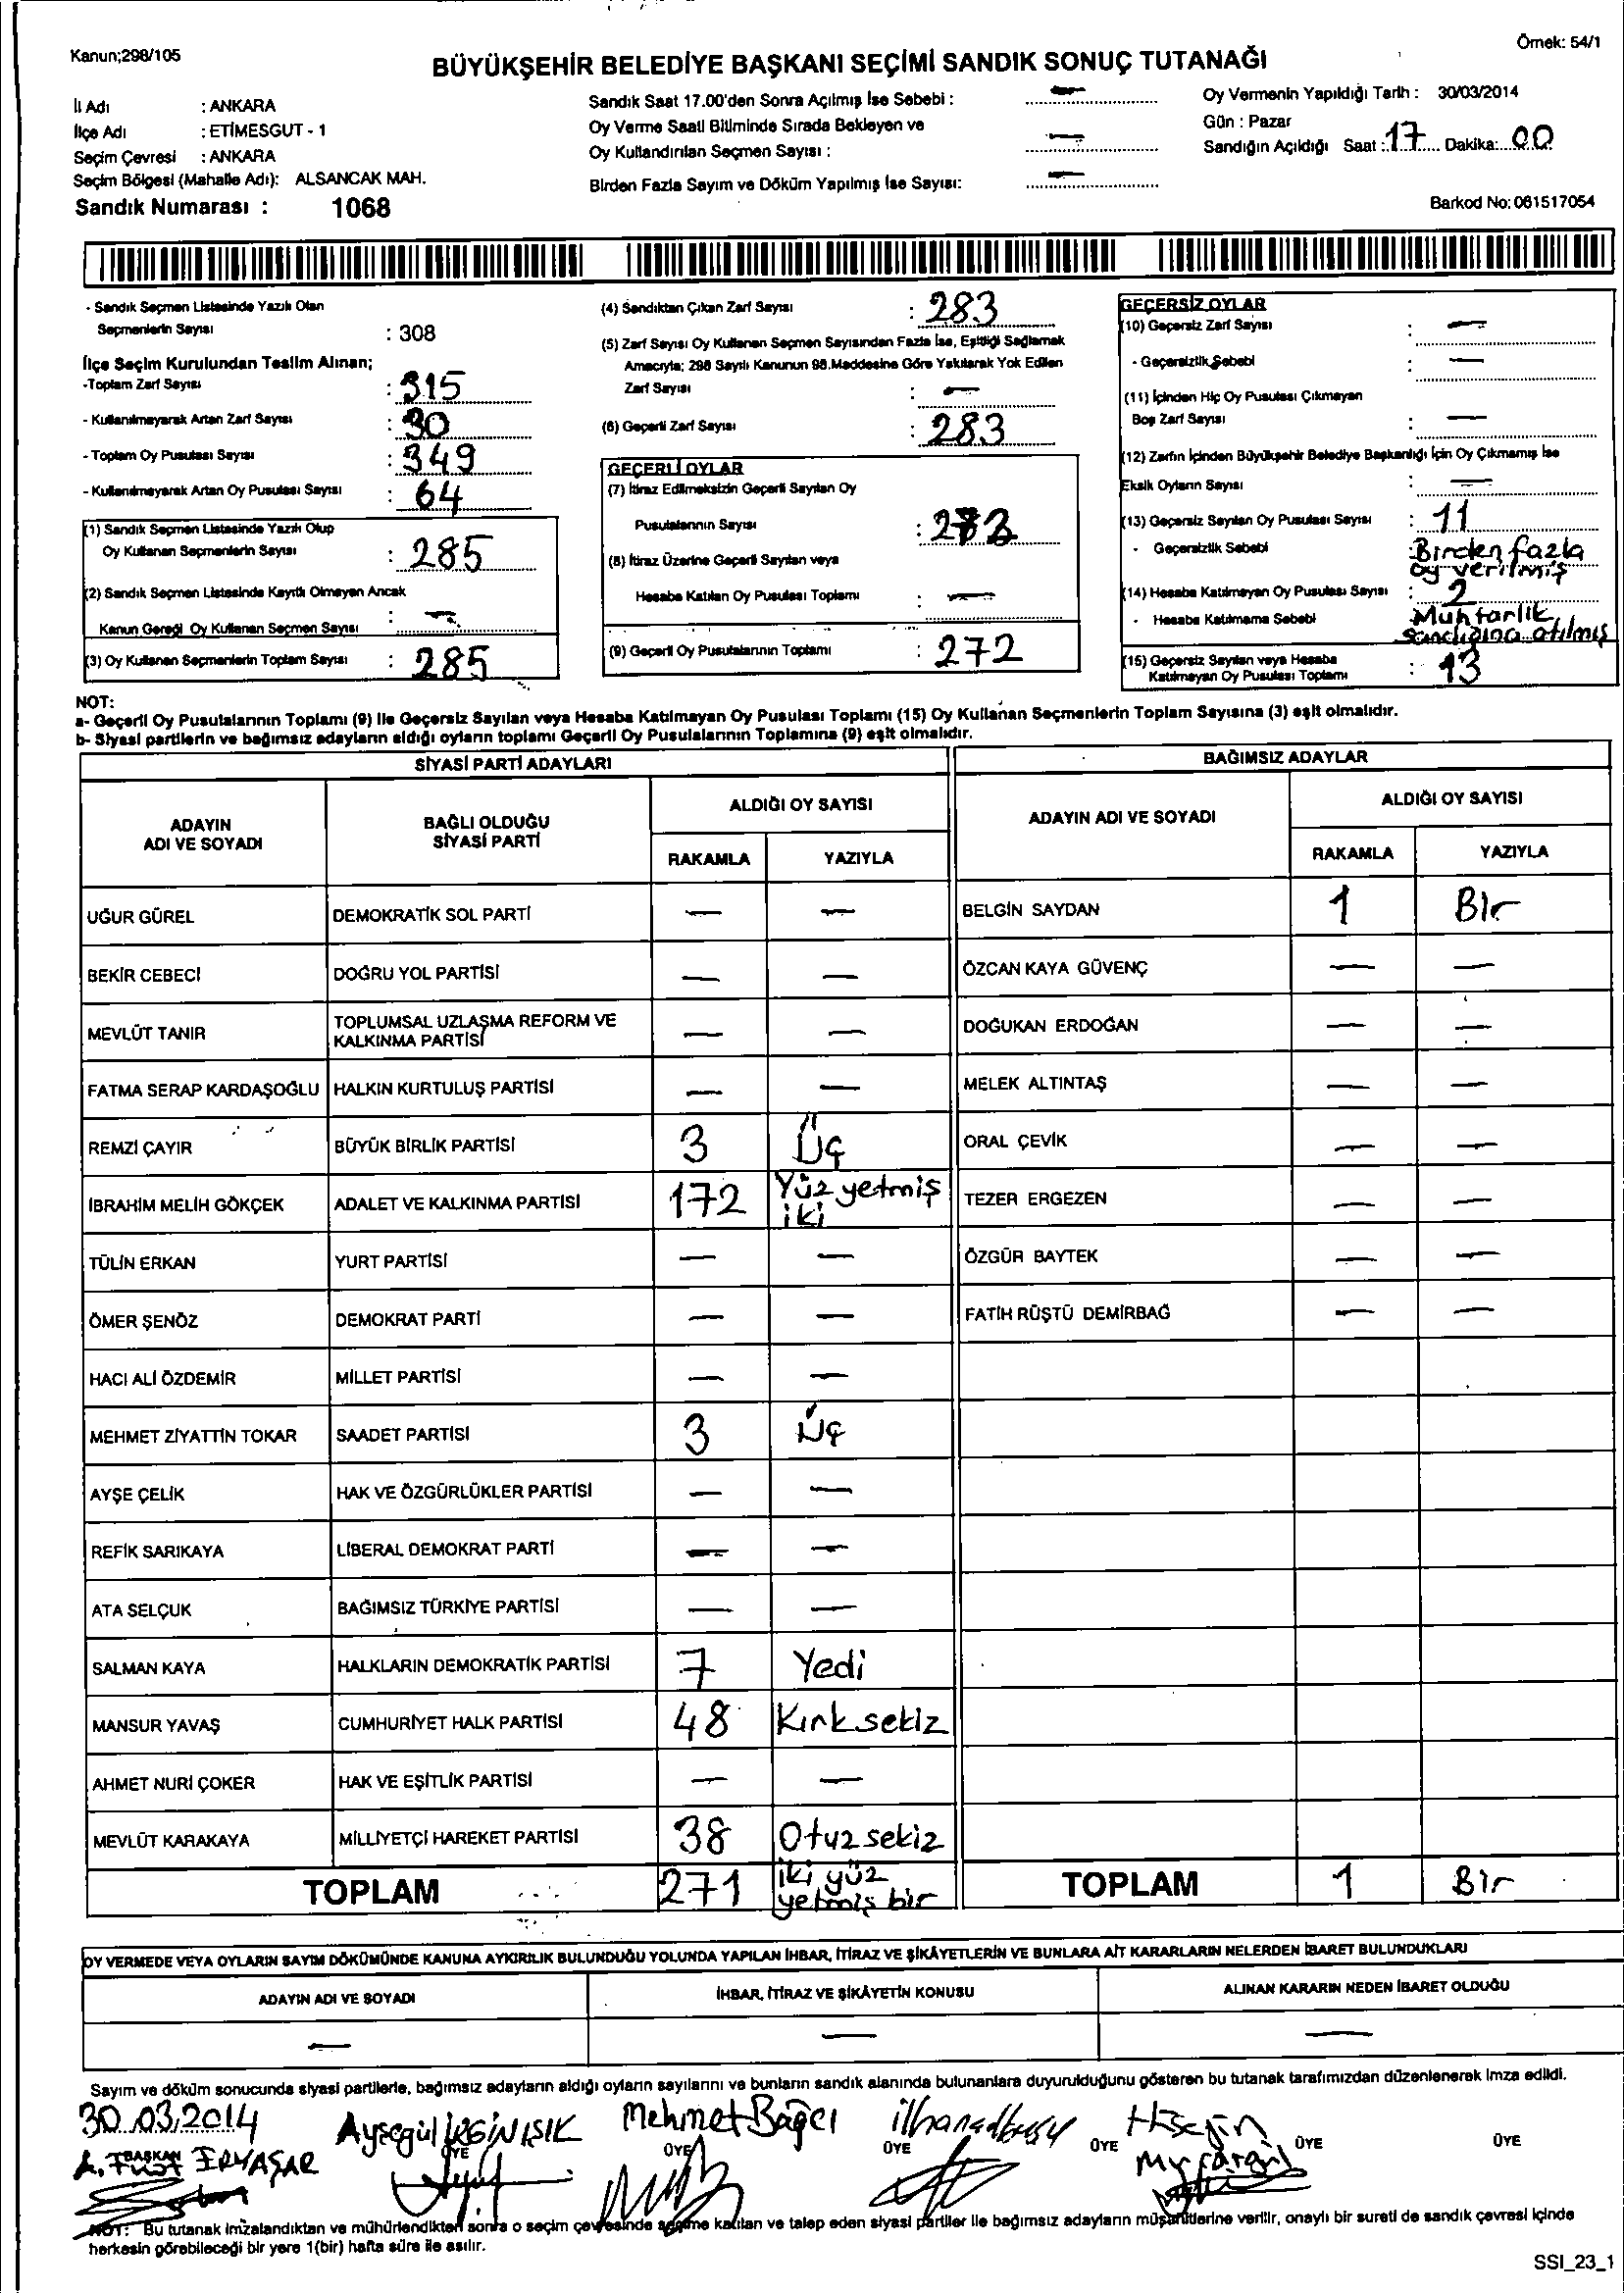 Kanun;298/105
Örnek: 54/1
BÜYÜKŞEHİR BELEDİYE BAŞKANI SEÇİMİ SANDIK SONUÇ TUTANAĞI
İl Adı : ANKARA
İlçe Adı : ETİMESGUT - 1
Seçim Çevresi : ANKARA
Seçim Bölgesi (Mahalle Adı): ALSANCAK MAH.
Sandık Numarası : 1068
Sandık Saat 17.00'den Sonra Açılmış İse Sebebi : —
Oy Verme Saati Bitiminde Sırada Bekleyen ve
Oy Kullandırılan Seçmen Sayısı : —
Birden Fazla Sayım ve Döküm Yapılmış İse Sayısı: —
Oy Vermenin Yapıldığı Tarih : 30/03/2014
Gün : Pazar
Sandığın Açıldığı Saat : 17 Dakika: 00
Barkod No: 061517054
- Sandık Seçmen Listesinde Yazılı Olan
Seçmenlerin Sayısı : 308
İlçe Seçim Kurulundan Teslim Alınan;
-Toplam Zarf Sayısı : 315
- Kullanılmayarak Artan Zarf Sayısı : 30
- Toplam Oy Pusulası Sayısı : 349
- Kullanılmayarak Artan Oy Pusulası Sayısı : 64
(1) Sandık Seçmen Listesinde Yazılı Olup
Oy Kullanan Seçmenlerin Sayısı : 285
(2) Sandık Seçmen Listesinde Kayıtlı Olmayan Ancak
Kanun Gereği Oy Kullanan Seçmen Sayısı : —
(3) Oy Kullanan Seçmenlerin Toplam Sayısı : 285
(4) Sandıktan Çıkan Zarf Sayısı : 283
(5) Zarf Sayısı Oy Kullanan Seçmen Sayısından Fazla İse, Eşitliği Sağlamak
Amacıyla; 298 Sayılı Kanunun 98.Maddesine Göre Yakılarak Yok Edilen
Zarf Sayısı : —
(6) Geçerli Zarf Sayısı : 283
GEÇERLİ OYLAR
(7) İtiraz Edilmeksizin Geçerli Sayılan Oy
Pusulalarının Sayısı :
(8) İtiraz Üzerine Geçerli Sayılan veya
Hesaba Katılan Oy Pusulası Toplamı : —
(9) Geçerli Oy Pusulalarının Toplamı : 272
GEÇERSİZ OYLAR
(10) Geçersiz Zarf Sayısı : —
- Geçersizlik Sebebi : —
(11) İçinden Hiç Oy Pusulası Çıkmayan
Boş Zarf Sayısı : —
(12) Zarfın İçinden Büyükşehir Belediye Başkanlığı İçin Oy Çıkmamış İse
Eksik Oyların Sayısı : —
(13) Geçersiz Sayılan Oy Pusulası Sayısı : 11
- Geçersizlik Sebebi : Birden fazla
oy verilmiş
(14) Hesaba Katılmayan Oy Pusulası Sayısı : 2
- Hesaba Katılmama Sebebi Muhtarlık
sandığına atılmış
(15) Geçersiz Sayılan veya Hesaba
Katılmayan Oy Pusulası Toplamı : 13
NOT:
a- Geçerli Oy Pusulalarının Toplamı (9) ile Geçersiz Sayılan veya Hesaba Katılmayan Oy Pusulası Toplamı (15) Oy Kullanan Seçmenlerin Toplam Sayısına (3) eşit olmalıdır.
b- Siyasi partilerin ve bağımsız adayların aldığı oyların toplamı Geçerli Oy Pusulalarının Toplamına (9) eşit olmalıdır.
SİYASİ PARTİ ADAYLARI
ADAYIN
ADI VE SOYADI
BAĞLI OLDUĞU
SİYASİ PARTİ
ALDIĞI OY SAYISI
RAKAMLA YAZIYLA
UĞUR GÜREL DEMOKRATİK SOL PARTİ — —
BEKİR CEBECİ DOĞRU YOL PARTİSİ — —
MEVLÜT TANIR TOPLUMSAL UZLAŞMA REFORM VE
KALKINMA PARTİSİ — —
FATMA SERAP KARDAŞOĞLU HALKIN KURTULUŞ PARTİSİ — —
REMZİ ÇAYIR BÜYÜK BİRLİK PARTİSİ 3 Üç
İBRAHİM MELİH GÖKÇEK ADALET VE KALKINMA PARTİSİ 172 Yüz yetmiş
iki
TÜLİN ERKAN YURT PARTİSİ — —
ÖMER ŞENÖZ DEMOKRAT PARTİ — —
HACI ALİ ÖZDEMİR MİLLET PARTİSİ — —
MEHMET ZİYATTİN TOKAR SAADET PARTİSİ 3 Üç
AYŞE ÇELİK HAK VE ÖZGÜRLÜKLER PARTİSİ — —
REFİK SARIKAYA LİBERAL DEMOKRAT PARTİ — —
ATA SELÇUK BAĞIMSIZ TÜRKİYE PARTİSİ — —
SALMAN KAYA HALKLARIN DEMOKRATİK PARTİSİ 7 Yedi
MANSUR YAVAŞ CUMHURİYET HALK PARTİSİ 48 Kırk sekiz
AHMET NURİ ÇOKER HAK VE EŞİTLİK PARTİSİ — —
MEVLÜT KARAKAYA MİLLİYETÇİ HAREKET PARTİSİ 38 Otuz sekiz
TOPLAM 271 iki yüz
yetmiş bir
BAĞIMSIZ ADAYLAR
ADAYIN ADI VE SOYADI
ALDIĞI OY SAYISI
RAKAMLA YAZIYLA
BELGİN SAYDAN 1 Bir
ÖZCAN KAYA GÜVENÇ — —
DOĞUKAN ERDOĞAN — —
MELEK ALTINTAŞ — —
ORAL ÇEVİK — —
TEZER ERGEZEN — —
ÖZGÜR BAYTEK — —
FATİH RÜŞTÜ DEMİRBAĞ — —
TOPLAM 1 Bir
OY VERMEDE VEYA OYLARIN SAYIM DÖKÜMÜNDE KANUNA AYKIRILIK BULUNDUĞU YOLUNDA YAPILAN İHBAR, İTİRAZ VE ŞİKÂYETLERİN VE BUNLARA AİT KARARLARIN NELERDEN İBARET BULUNDUKLARI
ADAYIN ADI VE SOYADI İHBAR, İTİRAZ VE ŞİKÂYETİN KONUSU ALINAN KARARIN NEDEN İBARET OLDUĞU
— — —
Sayım ve döküm sonucunda siyasi partilerle, bağımsız adayların aldığı oyların sayılarını ve bunların sandık alanında bulunanlara duyurulduğunu gösteren bu tutanak tarafımızdan düzenlenerek imza edildi.
30.03.2014
BAŞKAN ÜYE ÜYE ÜYE ÜYE ÜYE ÜYE
Ayşegül Mehmet Bağcı
NOT: Bu tutanak imzalandıktan ve mühürlendikten sonra o seçim çevresinde seçime katılan ve talep eden siyasi partiler ile bağımsız adayların müşahitlerine verilir, onaylı bir sureti de sandık çevresi içinde
herkesin görebileceği bir yere 1(bir) hafta süre ile asılır.
SSI_23_1